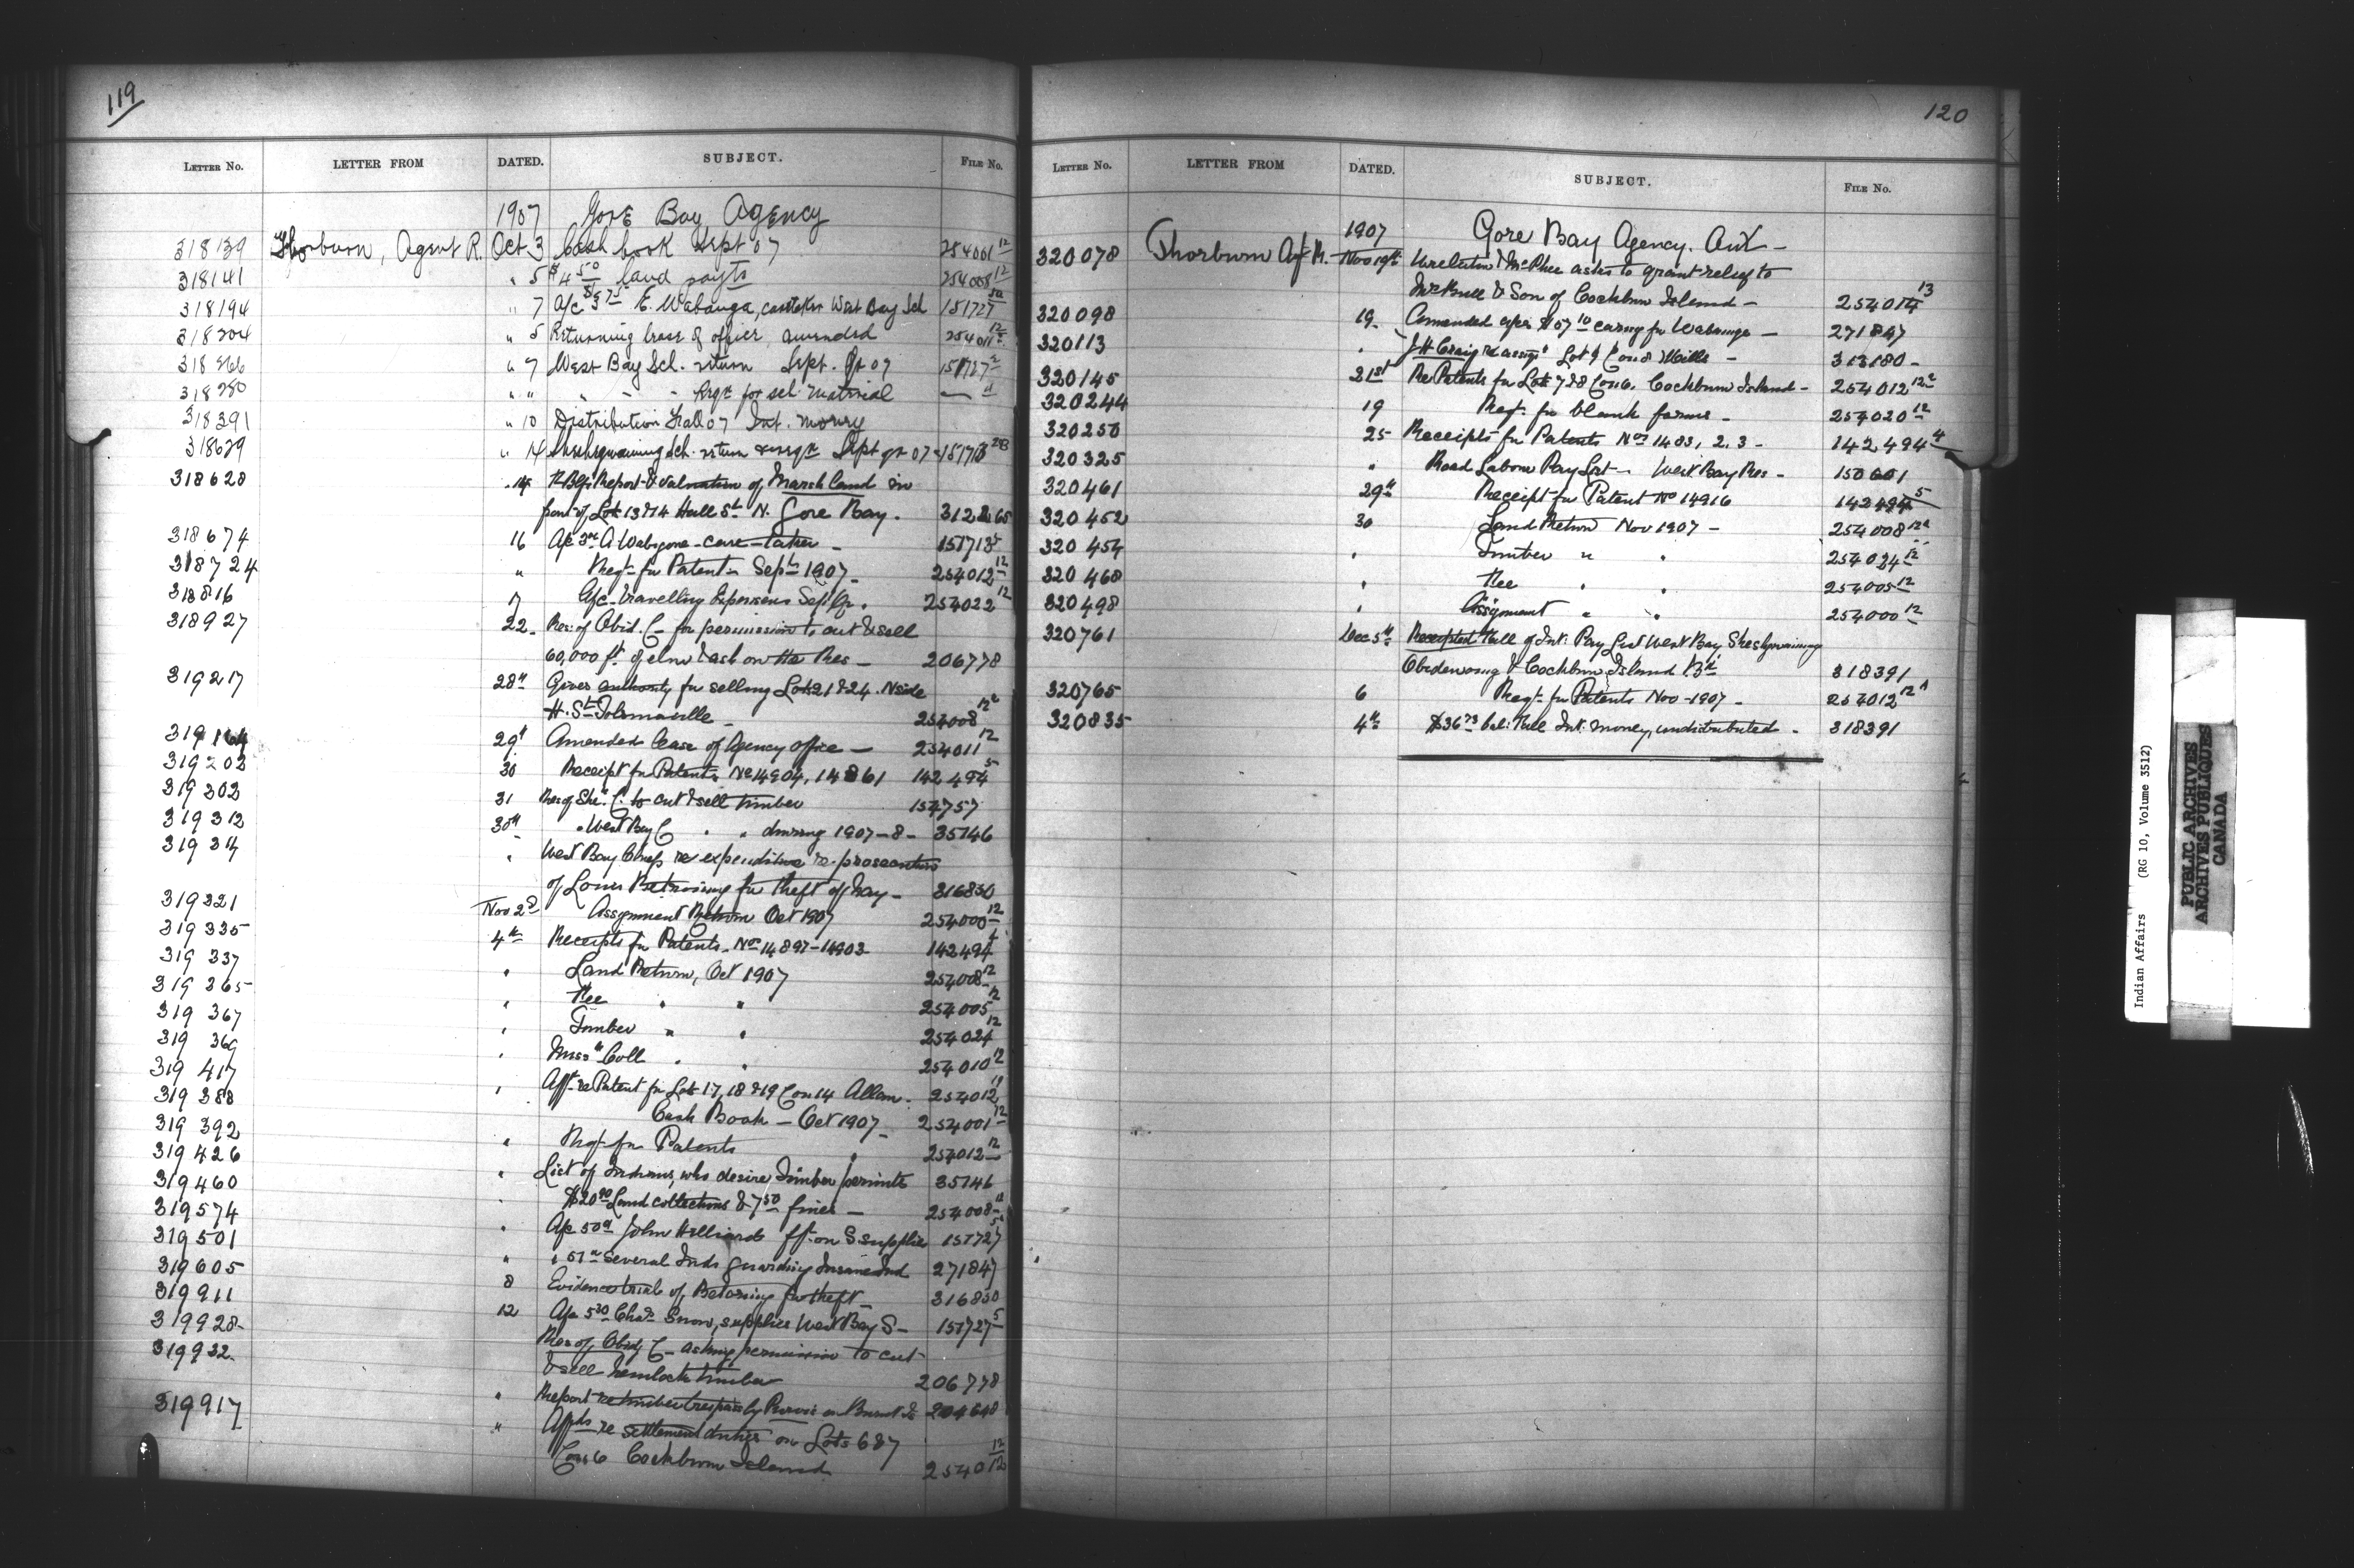 119
LETTER NO. LETTER FROM DATED. SUBJECT. FILE NO.
1907 Gore Bay Agency
318139 Thorburn, Agent R. Oct. 3 Cash book Sept 07 254001 12
318141 " 5 $4 50 land paym'ts 254008 12
318194 " 7 A/c E. Wabanga, caretaker West Bay Sch 151727 5a
318204 " 5 Returning lease of office amended 254011 12
318266 " 7 West Bay Sch. return Sept. Qr 07 151727 2
318280 " " " - - Reqn for sch. material — "
318391 " 10 Distribution Fall 07 Int. money
318629 " 14 Sch. return & reqn Sept qr 07
318628 " 14 Report & valuation of Marsh land in
front of Lots 13 & 14 Hall St. N. Gore Bay. 312265
318674 16 A/c A Wabegone - care-taker - 151713
318724 " Reqt for Patents Sept 1907 - 254012 12
318816 A/c travelling Expenses Sep Qr. 254022 12
318927 22 - Res: of Obid. C - for permission to cut & sell
60,000 ft. of elm & ash on the Res - 206778
319217 28th Gives authority for selling Lots 21 & 24 N side
H. St. Tolsmaville - 254008 12a
319164 29th Amended Lease of Agency office - 254011 12
319203 30 Receipt for Patents No 14904, 14861 142494 5
319302 31 Res of She: C. to cut & sell timber 154757
319312 30th " West Bay C " " during 1907-8 - 35146
319314 " West Bay Chiefs re expenditure re prosecution
of Louis for theft of hay - 316830
319321 Nov 2nd Assignment Return Oct 1907 254000 12
319335 4th Receipts for Patents - Nos 14897-14903 142494 4
319337 " Land Return, Oct 1907 254008 12
319365 " Fee " " 254005 12
319367 " Timber " " 254024 12
319369 " Miss" Coll " " 254010 12
319417 " Afft re Patent for Lots 17, 18 & 19 Con 14 Allan - 254012
319388 Cash Book - Oct 1907 - 254001 12
319392 " Reqt for Patents 254012 12
319426 " List of Indians, who desire Timber permits 35146
319460 " Land collections & 7 50 fines - 254008
319574 " A/c 50 John Hilliard supplies 151727
319501 " " 51 several Inds guarding Insane Ind 271847
319605 8 Evidence trial of for theft - 316830
319911 12 A/c Chas Snow, supplies West Bay S - 151727 5
319928 Res of Obidj C - asking permission to cut
& sell hemlock timber 206778
319932 " Report re timber trespass by Purvis on Burnt Is
319917 " Affds re settlement duties on Lots 6 & 7
Con 6 Cockburn Island 254012 12
120
LETTER NO. LETTER FROM DATED. SUBJECT. FILE NO.
1907 Gore Bay Agency. Ont -
320078 Thorburn Agt R. - Nov 19th & McPhee asks to grant relief to
& Son of Cockburn Island - 254014 13
320098 19 - Amended a/c 10 caring for Wabunga - 271847
320113 " J H Craig re assigt Lot 9 Con 8 Mills - 313180 -
320145 21st Re Patents for Lots 7 & 8 Con 6, Cockburn Island - 254012 12a
320244 19 Reqt for blank forms - 254020 12
320250 25 Receipts for Patents Nos 1483, 2, 3 - 142494 4
320325 " Road Labour Pay List - West Bay Res - 150601
320461 29th Receipt for Patent No 14916 142494 5
320452 30 Land Return Nov 1907 - 254008 12a
320454 " Timber " " 254024 12
320468 " Fee " " 254005 12
320498 " Assignment " " 254000 12
320761 Dec 5th Receipted Fall of Int. Pay List West Bay Sheshgwaning
Obidewong & Cockburn Island Bds 318391
320765 6 Reqt for Patents Nov - 1907 - 254012 12a
320835 4th $36 73 bal: Fall Int. money, undistributed - 318391
Indian Affairs (RG 10, Volume 3512)
PUBLIC ARCHIVES
ARCHIVES PUBLIQUES
CANADA